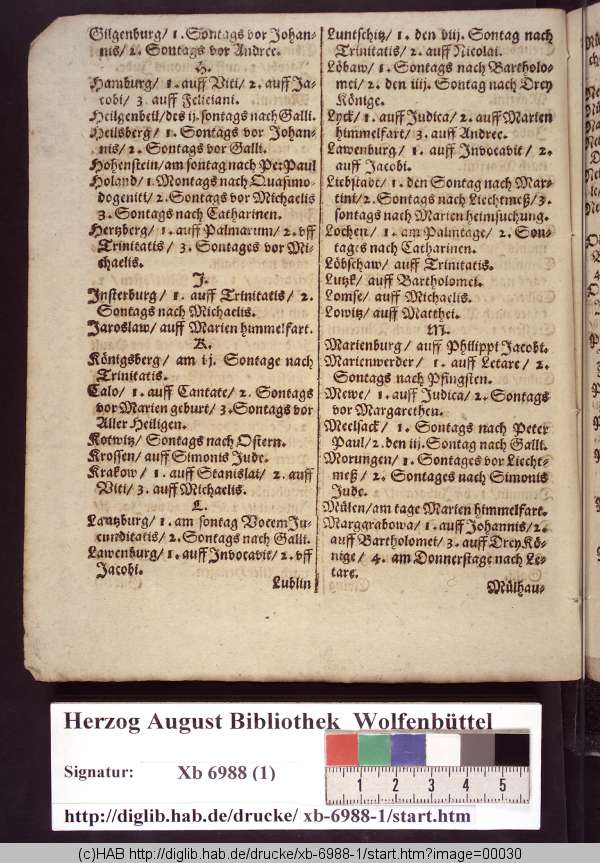 Gilgenburg/ 1. Sontags vor Johan-
nis/ 2. Sontags vor Andree.
H.
Hamburg/ 1. auff Viti/ 2. auff Ja-
cobi/ 3. auff Feliciani.
Heilgenbeil/ des ij. sontags nach Galli.
Heilsberg/ 1. Sontags vor Johan-
nis/ 2. Sontags vor Galli.
Hohenstein/ am sontag nach Pet. Paul
Holand/ 1. Montags nach Quasimo-
dogeniti/ 2. Sontags vor Michaelis
3. Sontags nach Catharinen.
Hertzberg/ 1. auff Palmarum/ 2. vff
Trinitatis/ 3. Sontages vor Mi-
chaelis.
J.
Insterburg/ 1. auff Trinitatis/ 2.
Sontags nach Michaelis.
Jaroslaw/ auff Marien himmelfart.
K.
Königsberg/ am ij. Sontage nach
Trinitatis.
Calo/ 1. auff Cantate/ 2. Sontags
vor Marien geburt/ 3. Sontags vor
Aller Heiligen.
Kotwitz/ Sontags nach Ostern.
Krossen/ auff Simonis Jude.
Krakow/ 1. auff Stanislai/ 2. auff
Viti/ 3. auff Michaelis.
L.
Lautzburg/ 1. am sontag Vocem Ju-
cunditatis/ 2. Sontags nach Galli.
Lawenburg/ 1. auff Invocavit/ 2. vff
Jacobi.
Lublin
Luntschitz/ 1. den viij. Sontag nach
Trinitatis/ 2. auff Nicolai.
Löbaw/ 1. Sontags nach Bartholo-
mei/ 2. den iiij. Sontag nach Drey
Könige.
Lyck/ 1. auff Judica/ 2. auff Marien
himmelfart/ 3. auff Andree.
Lawenburg/ 1. auff Invocavit/ 2.
auff Jacobi.
Liebstadt/ 1. den Sontag nach Mar-
tini/ 2. Sontags vor Liechtmeß/ 3.
sontags nach Marien heimsuchung.
Lochen/ 1. am Palmtage/ 2. Son-
tages nach Catharinen.
Löbschaw/ auff Trinitatis.
Lutzk/ auff Bartholomei.
Lomse/ auff Michaelis.
Lowitz/ auff Matthei.
M.
Marienburg/ auff Philippi Jacobi.
Marienwerder/ 1. auff Letare/ 2.
Sontags nach Pfingsten.
Mewe/ 1. auff Judica/ 2. Sontags
vor Margarethen.
Meelsack/ 1. Sontags nach Peter
Paul/ 2. den iij. Sontag nach Galli.
Morungen/ 1. Sontages vor Liecht-
meß/ 2. Sontages nach Simonis
Jude.
Mülen/ am tage Marien himmelfart.
Margarabowa/ 1. auff Johannis/ 2.
auff Bartholomei/ 3. auff Drey Kö-
nige/ 4. am Donnerstage nach Le-
tare.
Mülhau-
Herzog August Bibliothek Wolfenbüttel
Signatur: Xb 6988 (1)
1 2 3 4 5
http://diglib.hab.de/drucke/ xb-6988-1/start.htm
(c)HAB http://diglib.hab.de/drucke/xb-6988-1/start.htm?image=00030